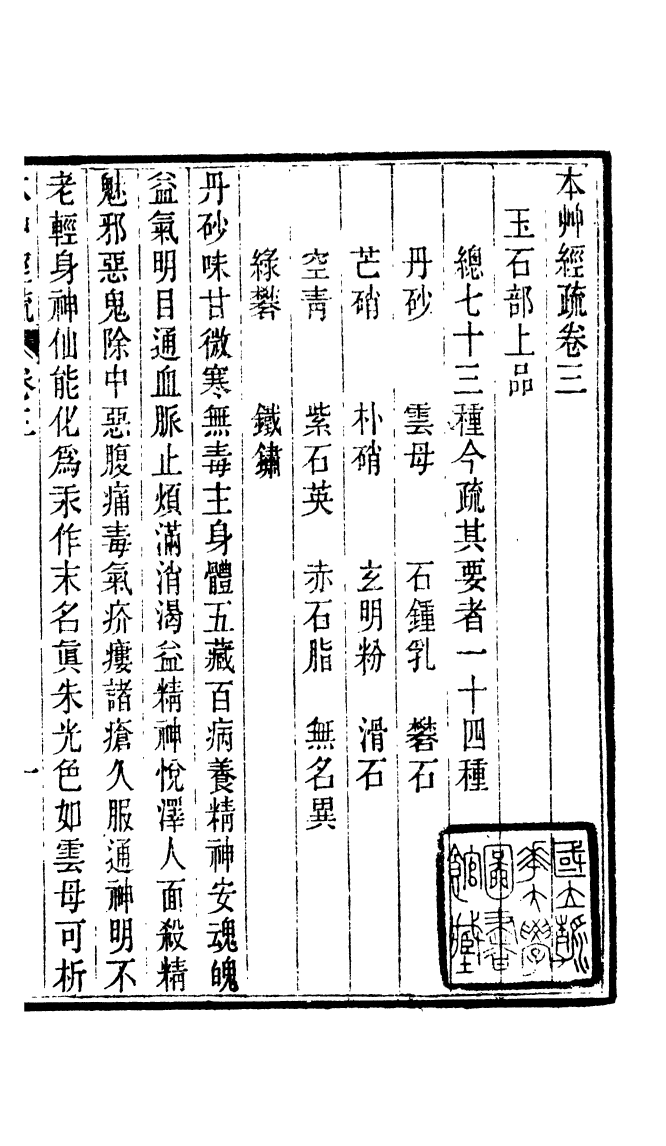 本艸經疏卷三
玉石部上品
總七十三種今疏其要者一十四種
丹砂 雲母 石鍾乳 礬石
芒硝 朴硝 玄明粉 滑石
空青 紫石英 赤石脂 無名異
綠礬 鐵鏽
丹砂味甘微寒無毒主身體五藏百病養精神安魂魄
益氣明目通血脈止煩滿消渴益精神悅澤人面殺精
魅邪惡鬼除中惡腹痛毒氣疥瘻諸瘡久服通神明不
老輕身神仙能化爲汞作末名眞朱光色如雲母可析
本艸經疏 卷三 一
國立清
華大學
圖書
館藏